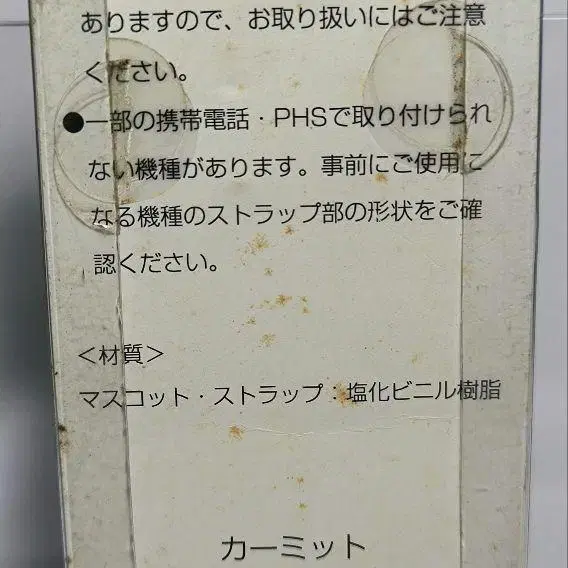 ありますので、お取り扱いにはご注意
ください。
●一部の携帯電話・PHSで取り付けられ
ない機種があります。事前にご使用に
なる機種のストラップ部の形状をご確
認ください。
＜材質＞
マスコット・ストラップ：塩化ビニル樹脂
カーミット